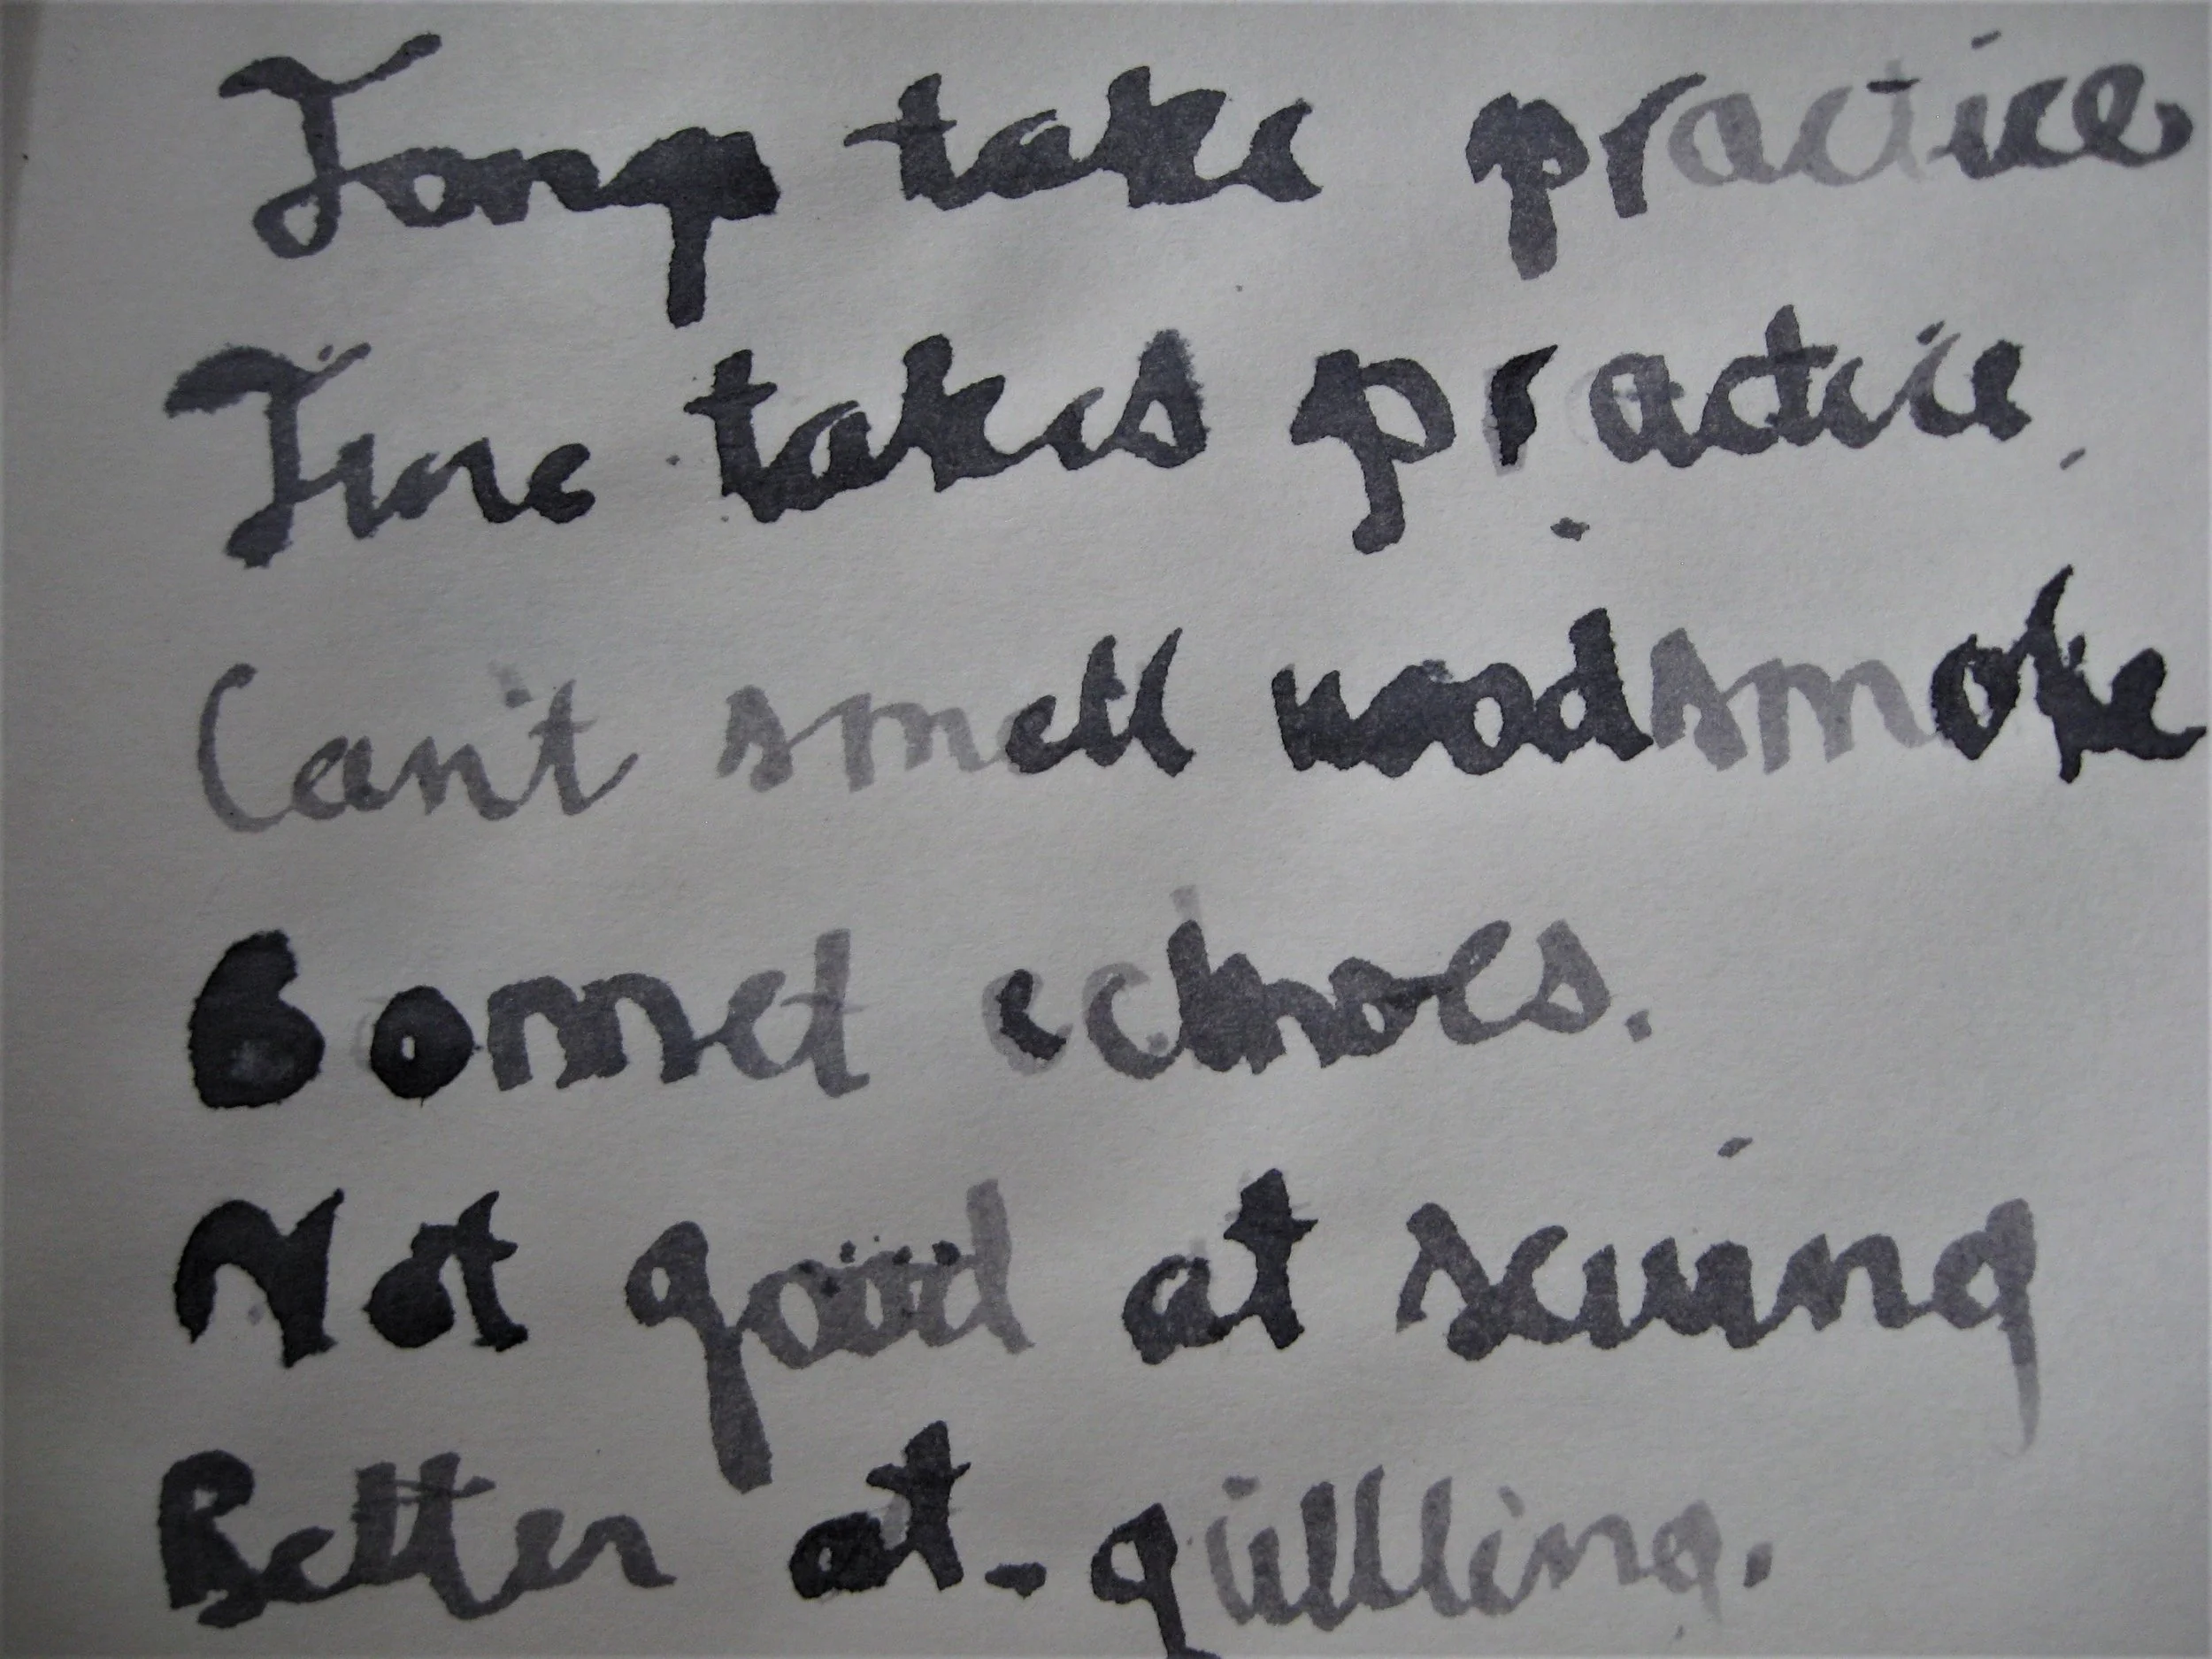 Tong take practice
Time takes practice.
Can't smell woodsmoke
Bonnet echoes.
Not good at sewing
Better at quilling.